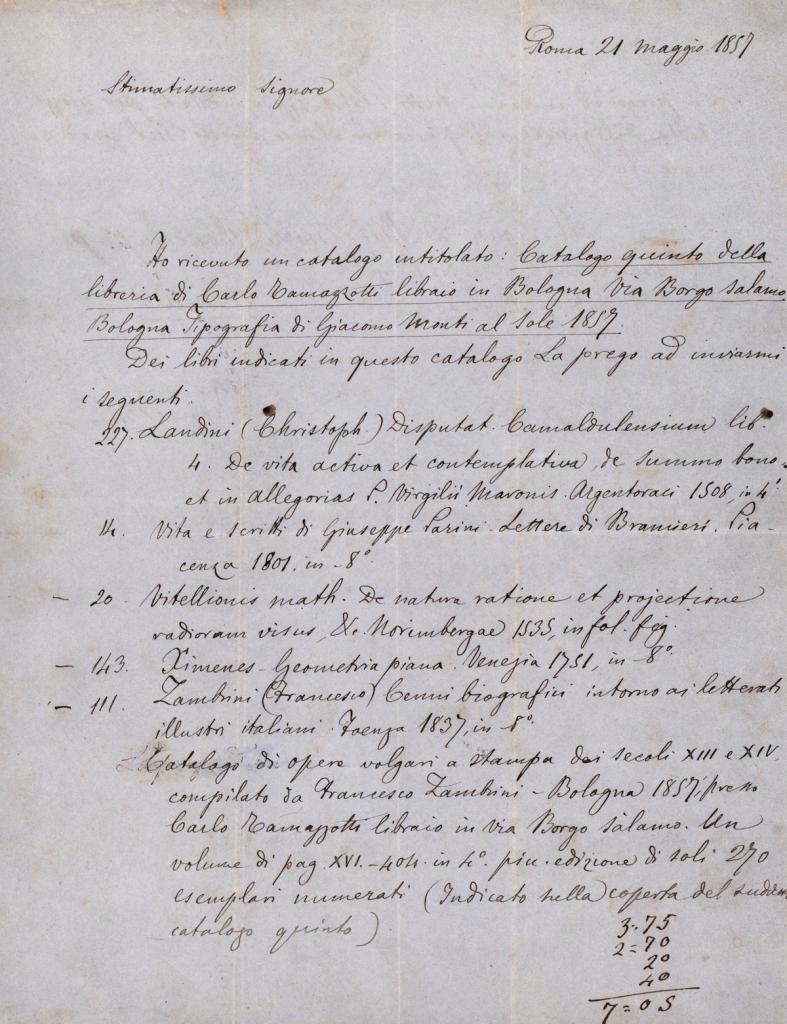 Roma 21 maggio 1857
Stimatissimo Signore
Ho ricevuto un catalogo intitolato: Catalogo quinto della
libreria di Carlo Ramazzotti libraio in Bologna Via Borgo Salamo
Bologna Tipografia di Giacomo Monti al Sole 1857.
Dei libri indicati in questo catalogo La prego ad inviarmi
i seguenti.
227. Landini (Christoph.) Disputat. Camaldulensium lib.
4. De vita activa et contemplativa, de summo bono
et in allegorias P. Virgilii Maronis. Argentoraci 1508, in 4°
14. Vita e scritti di Giuseppe Parini. Lettere di Bramieri. Pia-
cenza 1801. in-8°
— 20. Vitellionis math. De natura ratione et projectione
radioram visus, &c. Norimbergae 1535, in fol. fig.
— 143. Ximenes-Geometria piana. Venezia 1751, in-8°
— 111. Zambrini (Francesco) Cenni biografici intorno ai letterati
illustri italiani. Faenza 1837, in-8°.
Catalogo di opere volgari a stampa dei secoli XIII e XIV,
compilato da Francesco Zambrini - Bologna 1857 presso
Carlo Ramazzotti libraio in Via Borgo Salamo. Un
volume di pag. XVI.-404. in 4°. pic. edizione di soli 270
esemplari numerati (Indicato nella coperta del
catalogo quinto).
3.75
2=70
20
40
7=05